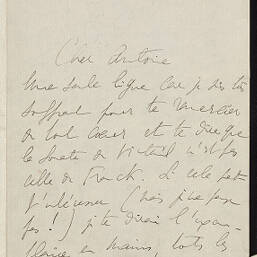 Cher Antoine
Une seule ligne car je suis très
souffrant pour te remercier
de tout cœur et te dire que
la Sonate de Vinteuil n'est pas
celle de Franck. Si cela peut
t'intéresser (mais je ne pense
pas !) je te dirai l'exem-
plaire en mains, toutes les